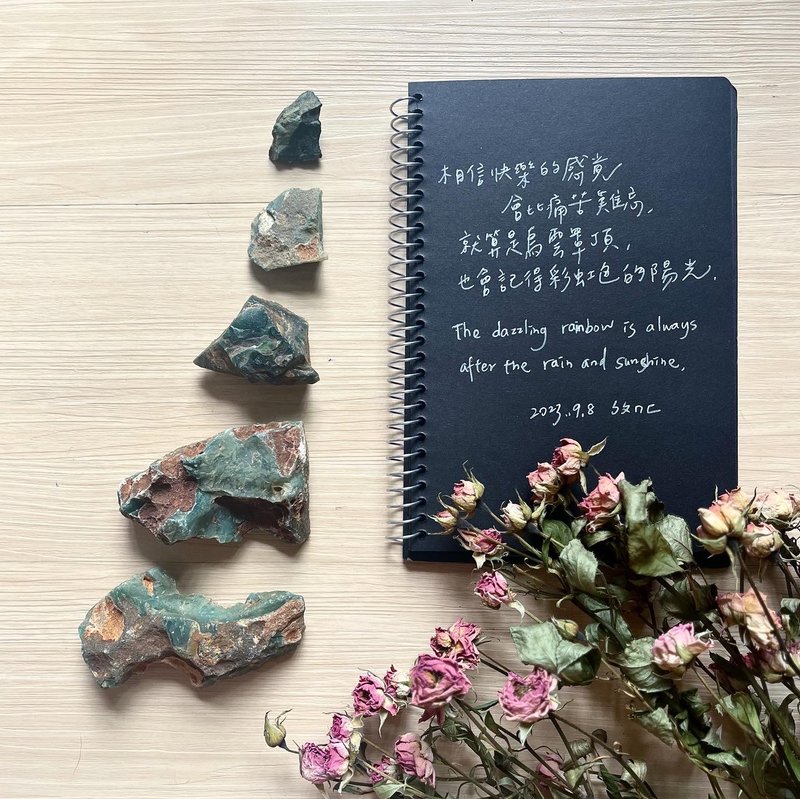 相信快樂的感覺
會比痛苦難忘,
就算是烏雲罩頂,
也會記得彩虹色的陽光.
The dazzling rainbow is always
after the rain and sunshine.
2023.9.8